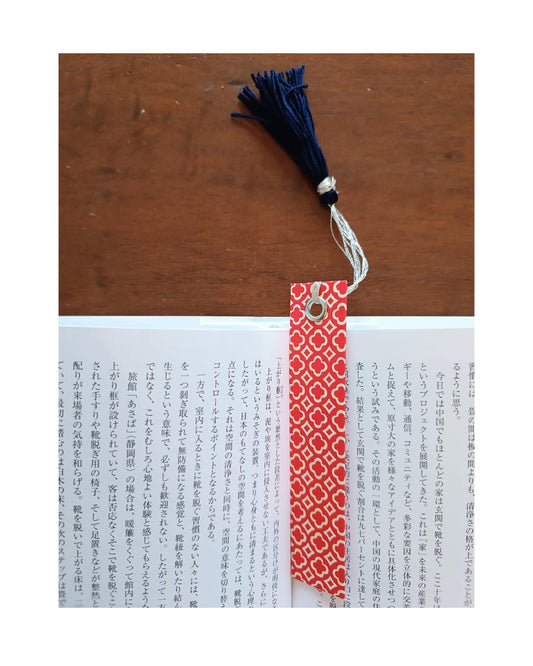 るように思う。
今日では中国でもほとんどの家は玄関で靴を脱ぐ。ここ十年ほ
というプロジェクトを展開してきた。これは「家」を未来の産業と
ギーや移動、通信、コミュニティなど、多彩な要因を立体的に交差
ムと捉えて、原寸大の家を様々なアイデアとともに具体化させつつ
うという試みである。その活動の一環として、中国の現代家庭の住
査した。結果として玄関で靴を脱ぐ割合は九七パーセントに達して
はいるというみそぎの装置、つまり心身ともに清まるという心理
したがって、日本のもてなしの空間を考えるにあたっては、靴脱
点になる。それは空間の清浄さと同時に、空間の意味を切り替
コントロールするポイントとなるからである。
一方で、室内に入るときに靴を脱ぐ習慣のない人々には、靴
を一つ剥ぎ取られて無防備になる感覚と、靴紐を解いたり結ん
生じるという意味で、必ずしも歓迎されない。したがって一方
ではなく、これをむしろ心地よい体験と感じてもらえるような
旅館「あさば」(静岡県)の場合は、暖簾をくぐって館内に
上がり框が設けられていて、客は否応なくそこで靴を脱ぐこ
された手すりや靴脱ぎ用の椅子、そして足置きなどが整然と
配りが来場者の気持を和らげる。靴を脱いで上がる床は、二